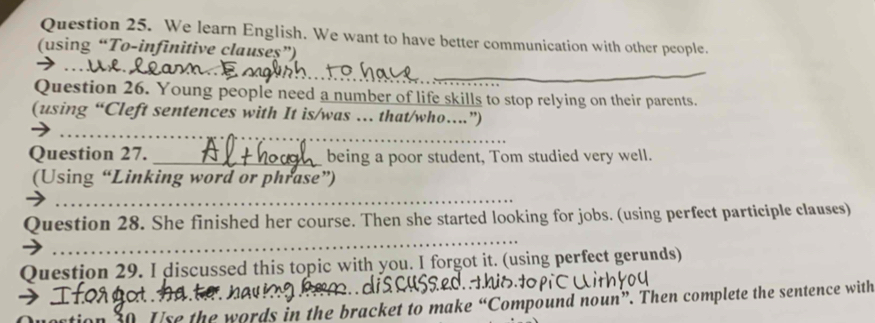 Question 25. We learn English. We want to have better communication with other people.
(using “To-infinitive clauses”)
→ ...We learn English to have
Question 26. Young people need a number of life skills to stop relying on their parents.
(using “Cleft sentences with It is/was ... that/who....”)
→ ..........
Question 27. Although being a poor student, Tom studied very well.
(Using “Linking word or phrase”)
→ ..........
Question 28. She finished her course. Then she started looking for jobs. (using perfect participle clauses)
→ ..........
Question 29. I discussed this topic with you. I forgot it. (using perfect gerunds)
→ I forgot having discussed this topic with you
Question 30. Use the words in the bracket to make “Compound noun”. Then complete the sentence with